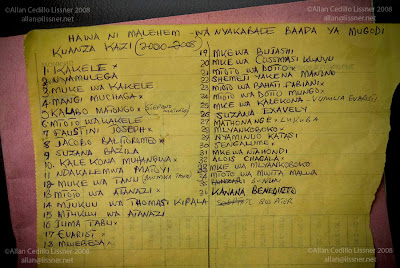 ©Allan Cedillo Lissner 2008
©Allan Cedillo Lissner 2008
HAWA NI MALEHEM - WA NYAKABALE BAADA YA MUGODI
KUANZA KAZI (2000-2008)
1 KAKELE x
2 NYAMULEGA
3 MUKE WA KAKELE
4 MANGI MUSHAGA x
5 KALABO MATONGO x
6 MTOTO WA KAKELE
7 FAUSTINI JOSEPH x
8 JACOBO BALITORUMBO x
9 SUZANA BAZILA
10 KALEKONA MUHANGWA x
11 NDAKALEMWA MATOYI
12 MUKE WA TANU
13 MTOTO WA ATANAZI x
14 MJUKUU WA THOMASI KIPALA
15 MJUKUU WA ATANAZI
16 JUMA TABU x
17 EVARIST x
18 MWEBESA x
19 MKE WA BUTASHI
20 MKE WA COSSMASI
21 MTOTO WA DOTTO x
22 SHEMEJI YAKE NA MANONO
23 MTOTO WA BAHATI FABIAN x
24 MTOTO WA DOTTO MUNGO x
25 MKE WA KALEKONA - VUMILIA EVARIST
26 SUZANA EXAVELY
27 MATHONANGE x LUKUBA
28 MLYANKOBOKO x
29 NYAMINUO KATASI
30 SENGALUME x
31 MKE WA NTAHONDI
32 ALOIS CHAGALA x
33 MKE WA MLYANKOBOKO
34 MTOTO WA MUITA MALWA
KANANA BENEDICTO
©Allan Cedillo Lissner 2008
allan@lissner.net
©Allan Cedillo Lissner 2008
allan@lissner.net